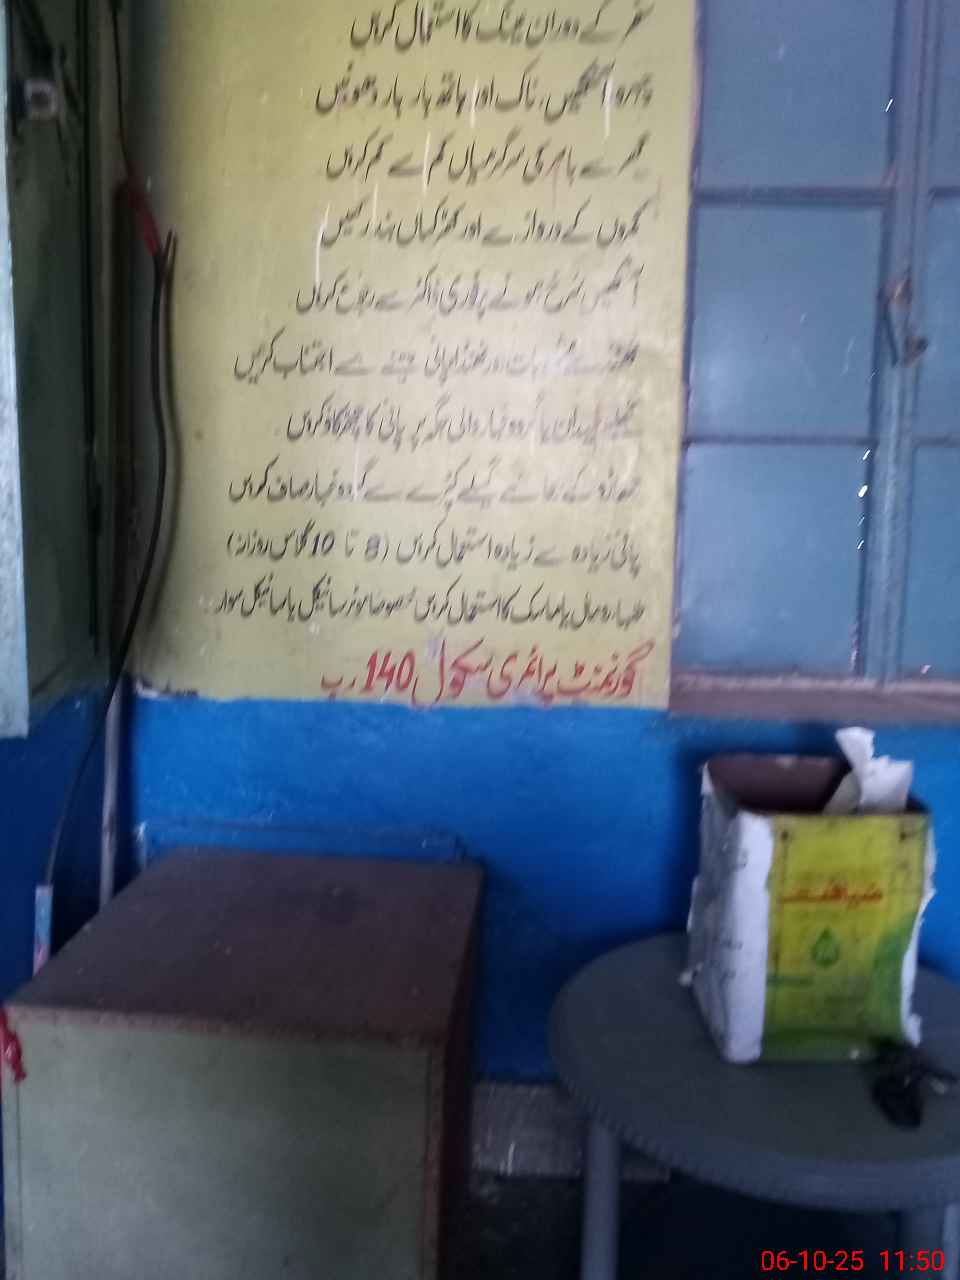 سفر کے دوران عینک کا استعمال کریں
چہرہ، آنکھیں، ناک اور ہاتھ بار بار دھوئیں
گھر سے باہر کی سرگرمیاں کم سے کم کریں
کمروں کے دروازے اور کھڑکیاں بند رکھیں
آنکھیں سرخ ہونے پر فوری ڈاکٹر سے رجوع کریں
ٹھنڈے مشروبات اور ٹھنڈا پانی پینے سے اجتناب کریں
کھیل میدان یا گردوغبار والی جگہ پر پانی کا چھڑکاؤ کریں
جھاڑو کے بجائے گیلے کپڑے سے گردوغبار صاف کریں
پانی زیادہ سے زیادہ استعمال کریں (8 تا 10 گلاس روزانہ)
طلباء رومال یا ماسک کا استعمال کریں خصوصا موٹرسائیکل یا سائیکل سوار
گورنمنٹ پرائمری سکول 140 رب
06-10-25 11:50